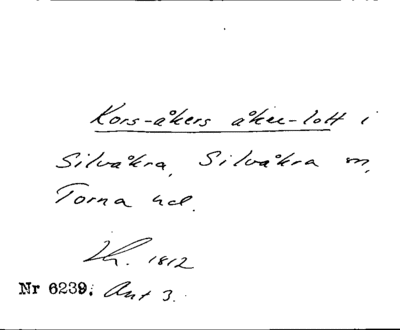 Kors-åkers åker-lott i
Silvåkra, Silvåkra sn,
Torna hd.
Lh. 1812
Nr 6239. Akt 3.